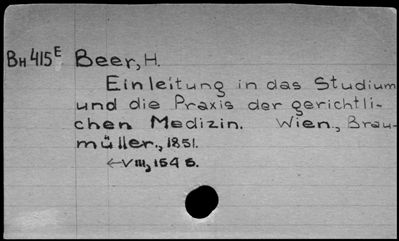 BH 415E Beer, H.
Einleitung in das Studium
und die Praxis der gerichtli-
chen Medizin. Wien., Brau-
müller., 1851.
←VIII, 154 S.